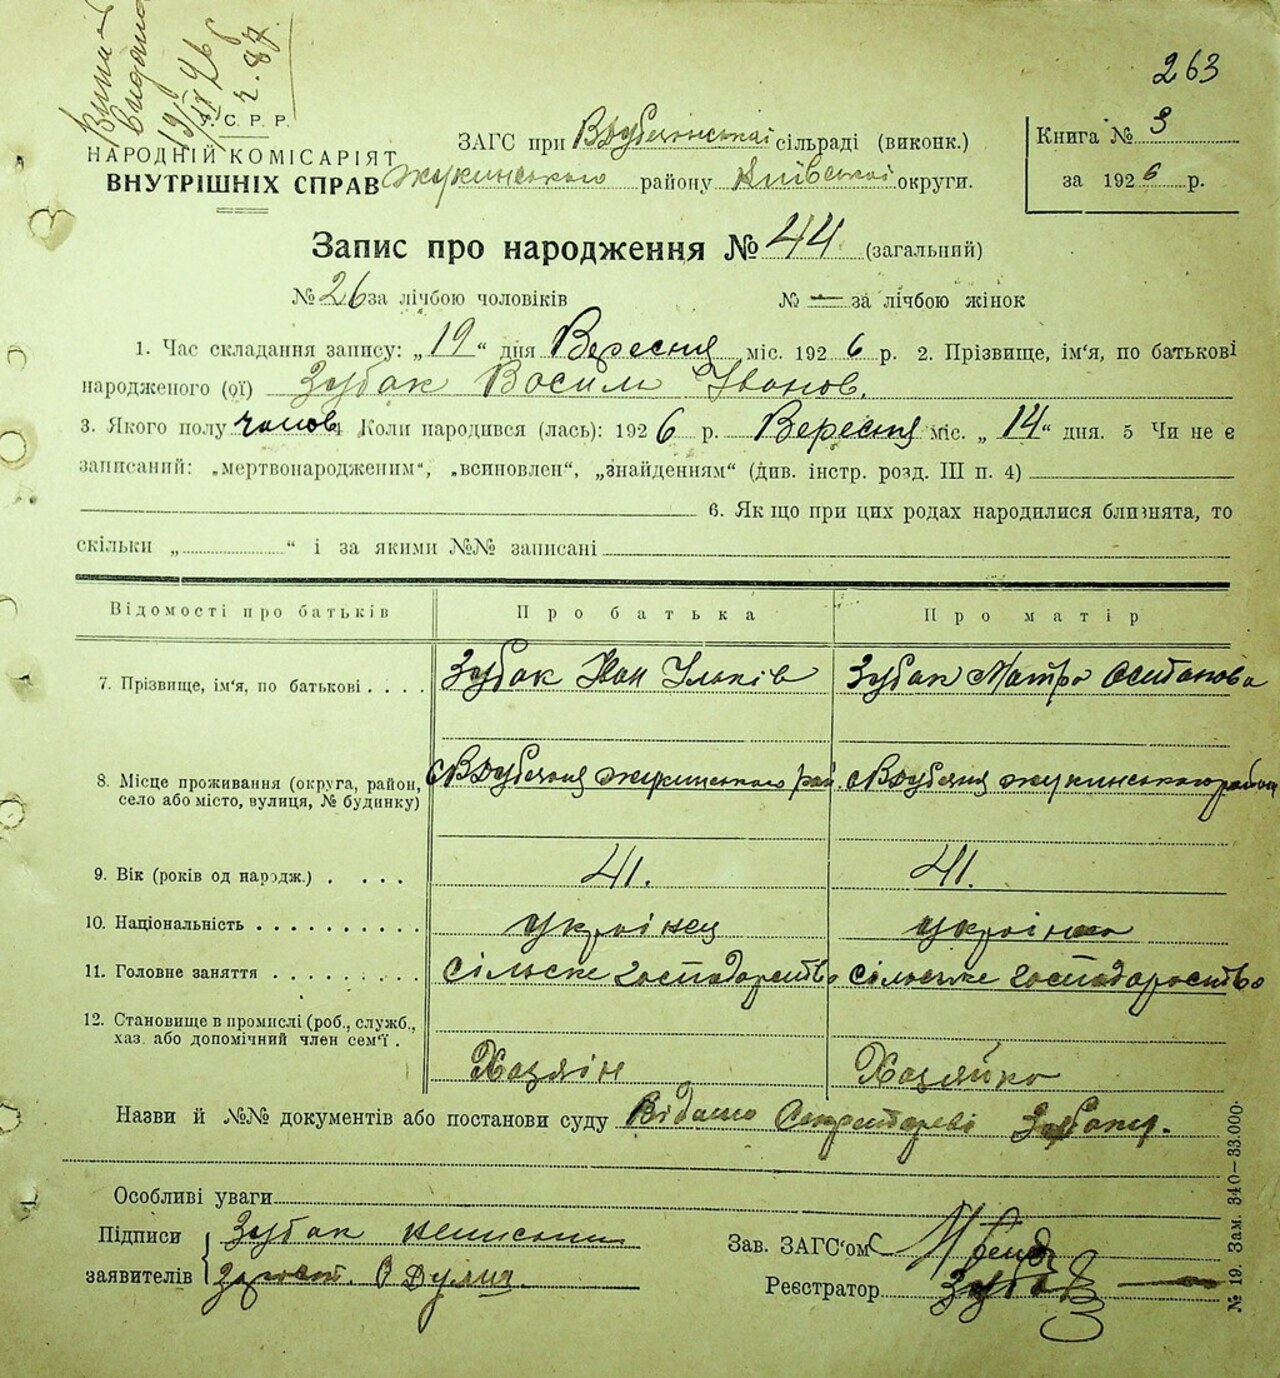 263
Видано
С. Р. Р.
НАРОДНІЙ КОМІСАРІЯТ
ВНУТРІШНІХ СПРАВ
ЗАГС при В Дубечанській сільраді (виконк.)
Жукинського району Київської округи.
Книга № 3
за 1926 р.
Запис про народження № 44 (загальний)
№ 26 за лічбою чоловіків № — за лічбою жінок
1. Час складання запису: „19“ дня Вересня міс. 1926 р. 2. Прізвище, ім'я, по батькові
народженого (ої) Зубак Василь Іванов.
3. Якого полу чолов. 4 Коли народився (лась): 1926 р. Вересня міс. „14“ дня. 5 Чи не є
записаний: „мертвонародженим“, „всиновлен“, „знайденням“ (див. інстр. розд. III п. 4)
6. Як що при цих родах народилися близнята, то
скільки „ “ і за якими №№ записані
Відомості про батьків Про батька Про матір
7. Прізвище, ім'я, по батькові . . . . Зубак Іван Ількив Зубак Мотря Остапова
8. Місце проживання (округа, район, село або місто, вулиця, № будинку) с В Дубечня Жукинського рай. с В Дубечня Жукинського району
9. Вік (років од народж.) . . . . 41. 41.
10. Національність . . . . . . . . . . українец українка
11. Головне заняття . . . . . . . . . Сільске господарство Сільське господарство
12. Становище в промислі (роб., служб.,
хаз. або допомічний член сем'ї . Хазяін Хазяйка
Назви й №№ документів або постанови суду Відано Секретареві Зубаку.
Особливі уваги
Підписи
заявителів
Зубак неписьмен
Зав. ЗАГС'ом
Реєстратор Зубак
№ 19. Зам. 340—33.000.